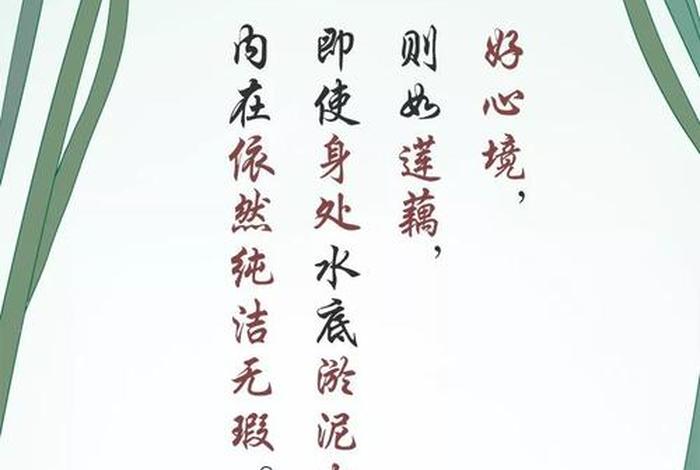 好心境，
则如莲藕，
即使身处水底淤泥
内在依然纯洁无瑕。